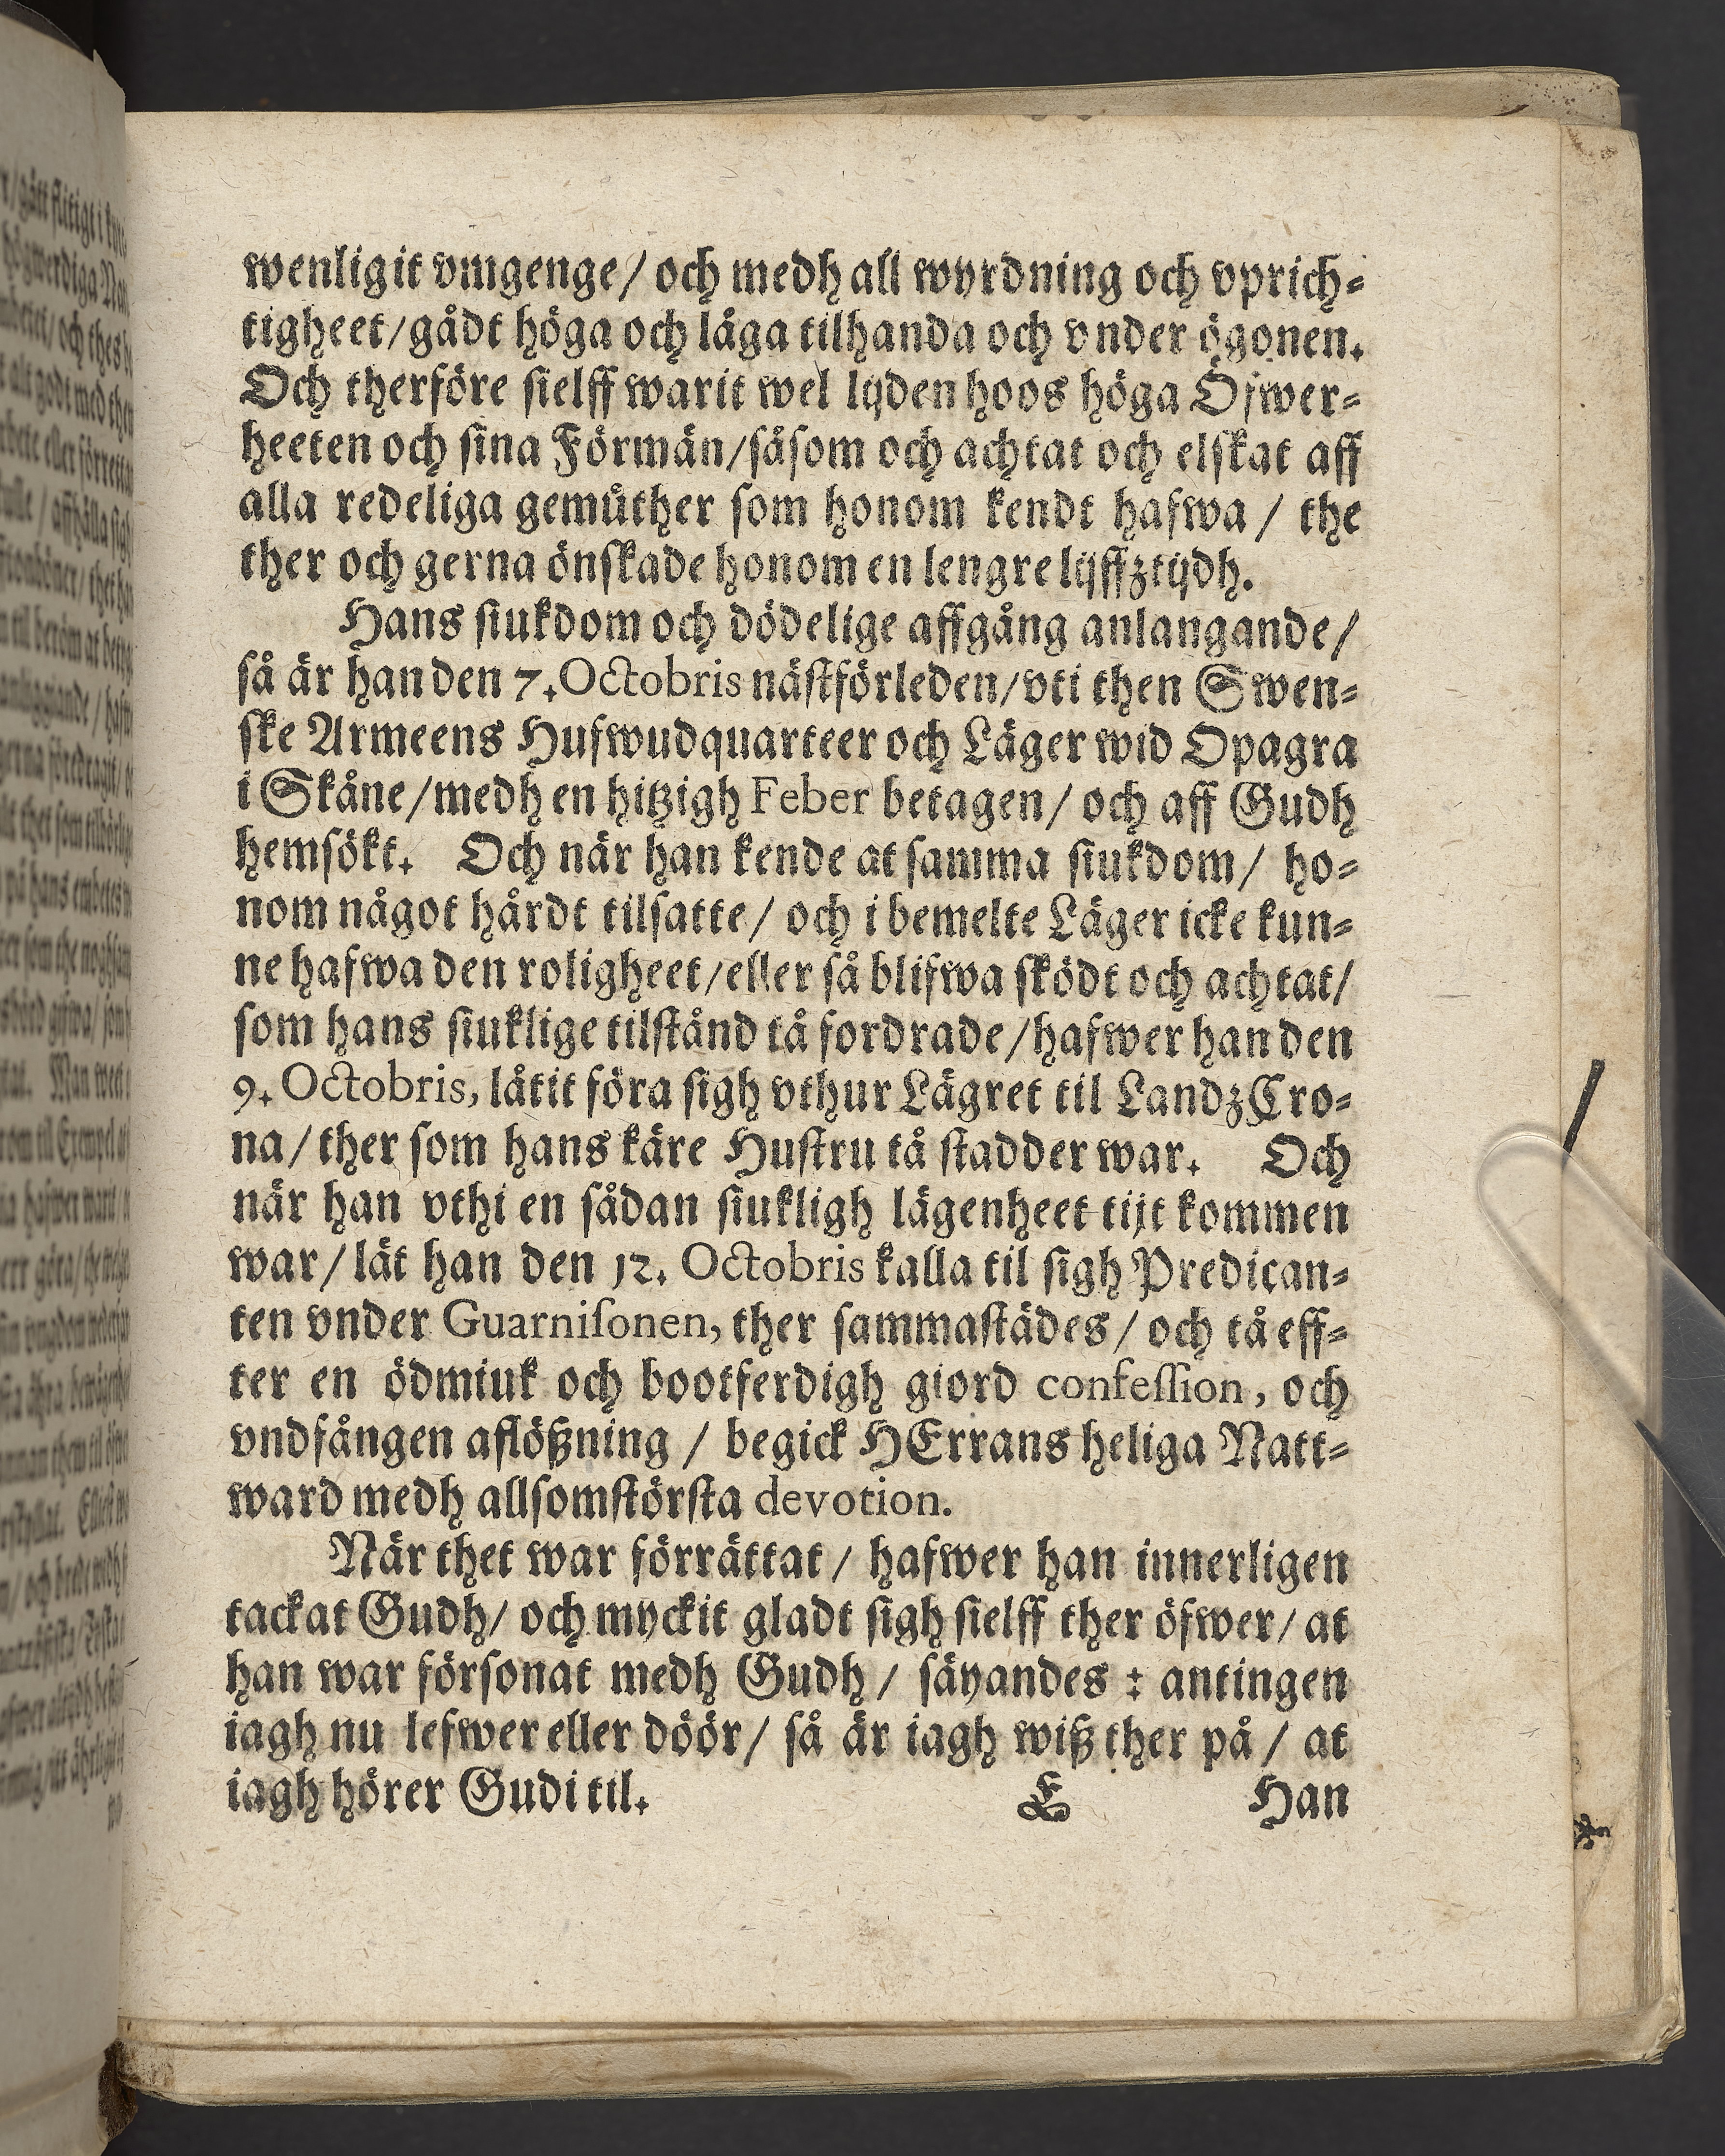 wenligit vmgenge/ och medh all wyrdning och vprich-
tigheet/gådt höga och låga tilhanda och vnder ögonen.
Och therföre sielff warit wel lijden hoos höga Öfwer-
heeten och sina Förmän/såsom och achtat och elskat aff
alla redeliga gemüther som honom kendt hafwa/ the
ther och gerna önskade honom en lengre lijffztijdh.
Hans siukdom och dödelige affgång anlangande/
så är han den 7. Octobris nästförleden/vti then Swen-
ske Armeens Hufwudquarteer och Läger wid Opagra
i Skåne/medh en hitzigh Feber betagen/ och aff Gudh
hemsökt. Och när han kende at samma siukdom/ ho-
nom något hårdt tilsatte/ och i bemelte Läger icke kun-
ne hafwa den roligheet/eller så blifwa sködt och achtat/
som hans siuklige tilstånd tå fordrade/hafwer han den
9. Octobris, låtit föra sigh vthur Lägret til LandzCro-
na/ ther som hans käre Hustru tå stadder war. Och
när han vthi en sådan siukligh lägenheet tijt kommen
war/ lät han den 12. Octobris kalla til sigh Predican-
ten vnder Guarnisonen, ther sammastädes/ och tå eff-
ter en ödmiuk och bootferdigh giord confession, och
vndfången aflößning / begick HErrans heliga Natt-
ward medh allsomstörsta devotion.
När thet war förrättat / hafwer han innerligen
tackat Gudh/ och myckit gladt sigh sielff ther öfwer/ at
han war försonat medh Gudh / säyandes : antingen
iagh nu lefwer eller döör/ så är iagh wiß ther på / at
iagh hörer Gudi til. E Han